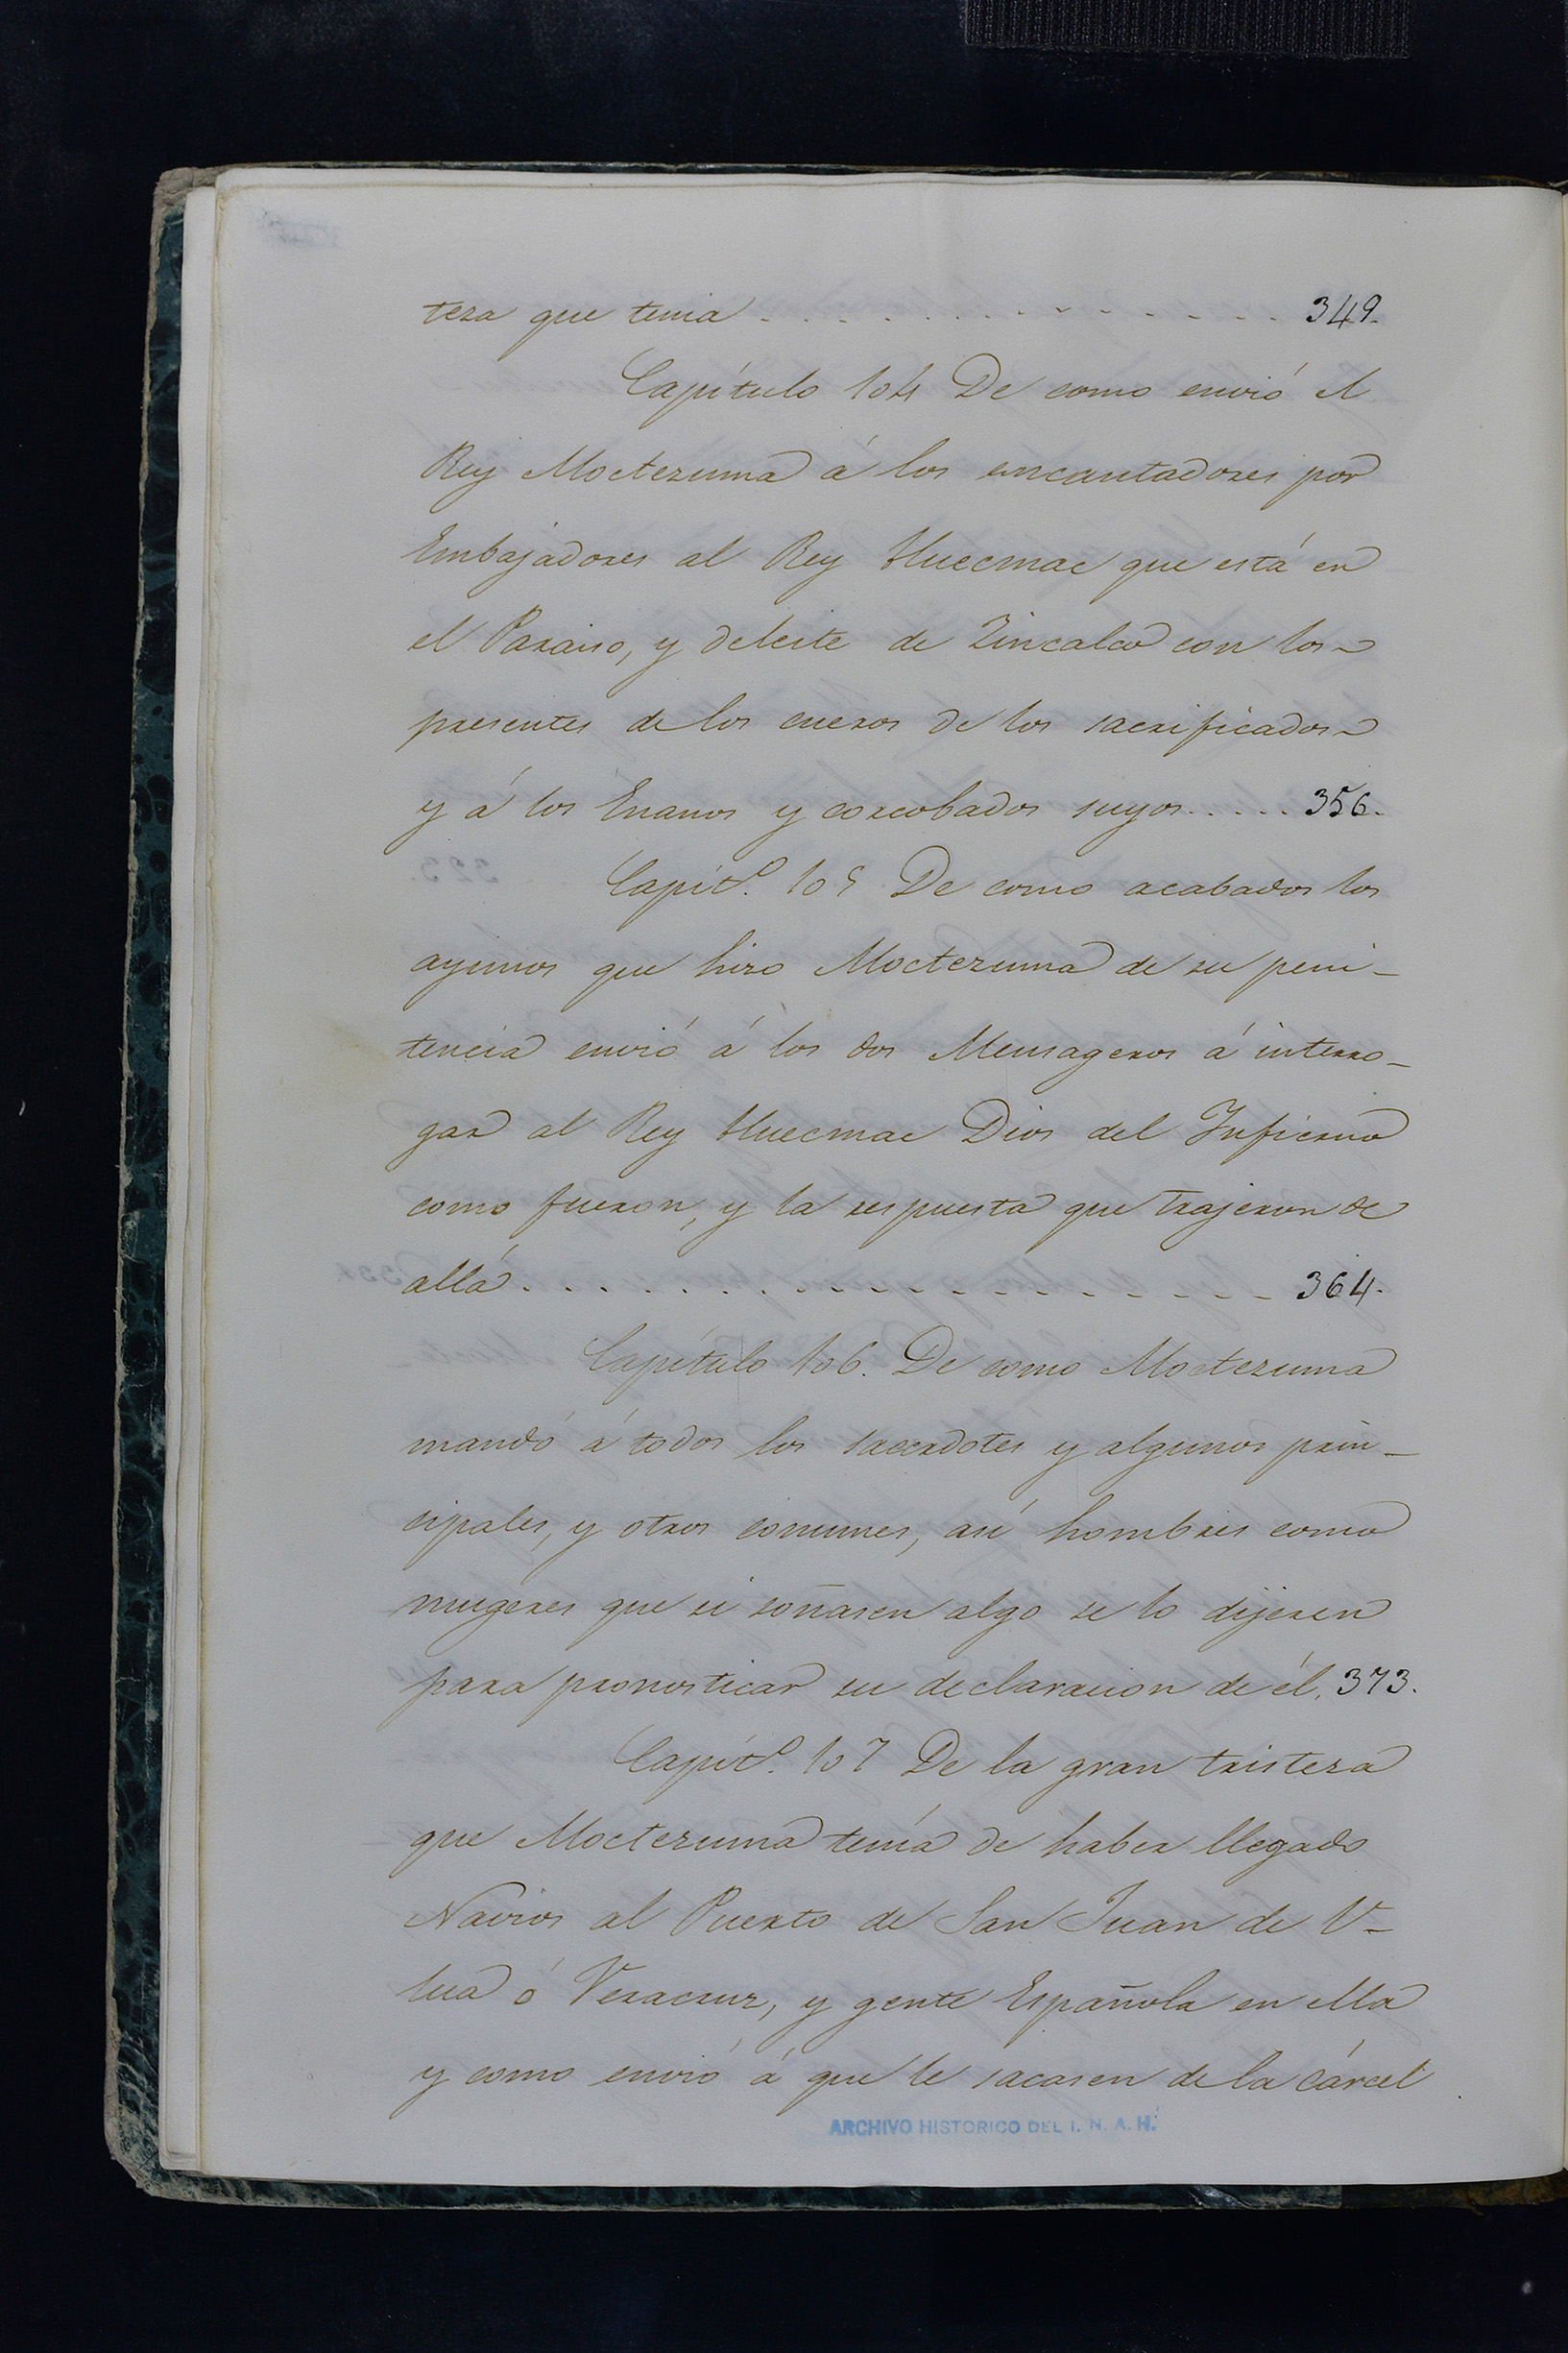 teza que tenia . . . . . . . . . . . . . . . . . 349.
Capítulo 104 De como envió el
Rey Moctezuma á los encantadores por
Embajadores al Rey Huecmac que está en
el Paraiso, y deleite de Zincalco con los
presentes de los cueros de los sacrificados
y á los Enanos y corcobados suyos . . . . . 356.
Capítº. 105 De como acabados los
ayunos que hizo Moctezuma de su peni-
tencia envió á los dos Mensageros á interro-
gar al Rey Huecmac Dios del Infierno
como fueron, y la respuesta que trajeron de
allá . . . . . . . . . . . . . . . . . . . . 364.
Capítulo 106. De como Moctezuma
mandó á todos los sacerdotes y algunos prin-
cipales, y otros comunes, así hombres como
mugeres que si soñasen algo se lo dijesen
para pronosticar su declaracion de él. 373.
Capítº. 107 De la gran tristeza
que Moctezuma tenía de haber llegado
Navios al Puerto de San Juan de U-
lua ó Veracruz, y gente Española en ella
y como envió á que le sacasen de la cárcel
ARCHIVO HISTORICO DEL I. N. A. H.